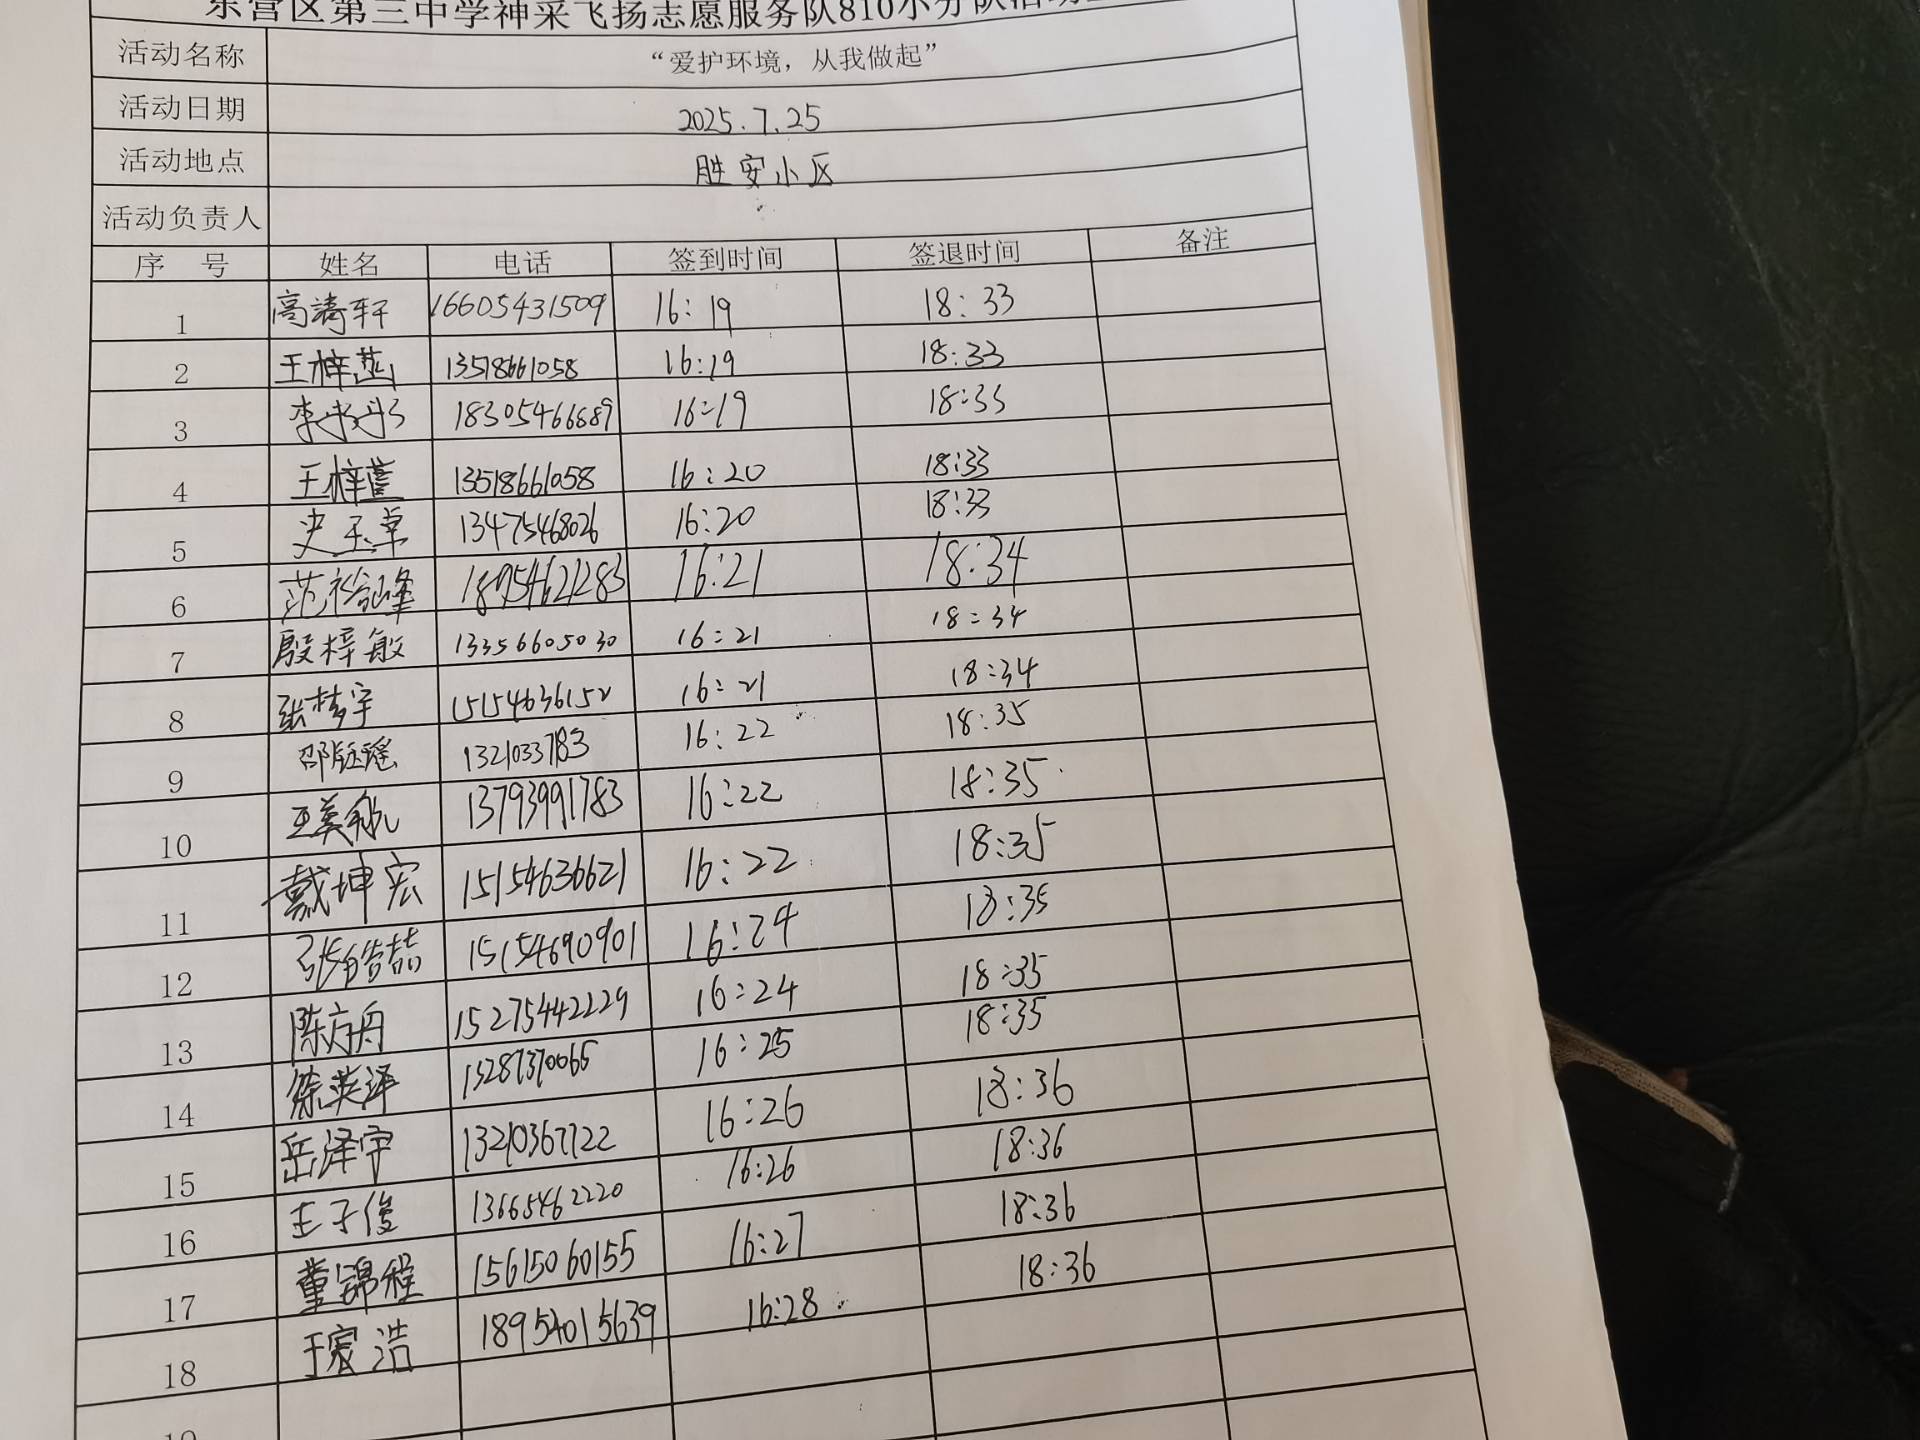 东营区第三中学神采飞扬志愿服务队810小分队活动
活动名称 “爱护环境，从我做起”
活动日期 2025.7.25
活动地点 胜安小区
活动负责人
序 号 姓名 电话 签到时间 签退时间 备注
1 高靖轩 16605431509 16:19 18:33
2 王梓菡 13518661058 16:19 18:33
3 李 18305466889 16:19 18:33
4 王梓萱 13518661058 16:20 18:33
5 史玉卓 13475468026 16:20 18:33
6 范裕峰 18954621283 16:21 18:34
7 殷梓敏 13356605030 16:21 18:34
8 张梦宇 15154636152 16:21 18:34
9 邵钰瑶 1321033783 16:22 18:35
10 王美航 13793991783 16:22 18:35
11 戴坤宏 15154636621 16:22 18:35
12 张皓喆 15154690901 16:24 18:35
13 陈方舟 15275442229 16:24 18:35
14 徐英泽 13287370065 16:25 18:35
15 岳泽宇 13210367122 16:26 18:36
16 王子俊 13665462220 16:26 18:36
17 董锦程 15615060155 16:27 18:36
18 王宸浩 18954015639 16:28 18:36
19